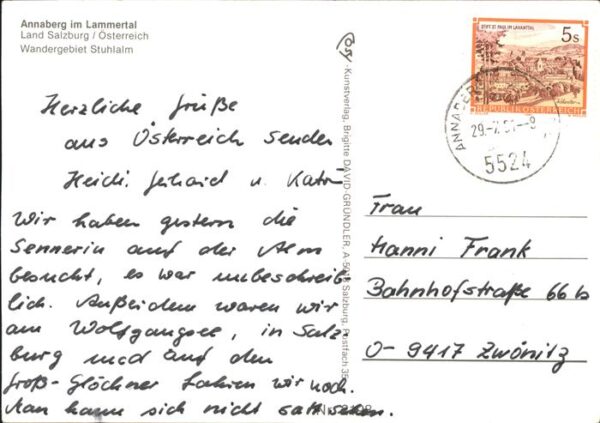 Annaberg im Lammertal
Land Salzburg / Österreich
Wandergebiet Stuhlalm
Herzliche Grüße
aus Österreich senden
Heidi, Gerhard u. Katr
Wir haben gestern die
Sennerin auf der Alm
besucht, es war unbeschreib-
lich. Außeidem waren wir
am Wolfgangsee, in Salz-
burg und auf den
Groß-Glöckner fahren wir noch.
Man kann sich nicht satt sehen.
Cosy -Kunstverlag, Brigitte DAVID-GRÜNDLER, A- Salzburg, Postfach 35
STIFT ST. PAUL IM LAVANTTAL
5s
REPUBLIK ÖSTERREICH
ANNABERG
29.-7. -9
5524
Frau
Hanni Frank
Bahnhofstraße 66 b
O-9417 Zwönitz